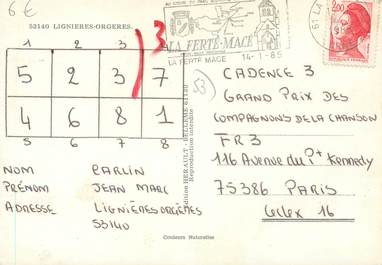 6€
53140 LIGNIERES-ORGERES.
1 2 3
3
5 2 3 7
4 6 8 1
5 6 7 8
LA FERTE-MACE
LA FERTE MACE 14-1-85
61 LA
2,00
53
CADENCE 3
GRAND PRIX DES
COMPAGNONS DE LA CHANSON
FR3
116 Avenue du Pt Kennedy
75386 PARIS
Cedex 16
NOM CARLIN
PRÉNOM JEAN MARC
ADRESSE LIGNIÈRES ORGÈRES
53140
Edition HERAULT - BELLEME 61130
Reproduction interdite
Couleurs Naturelles